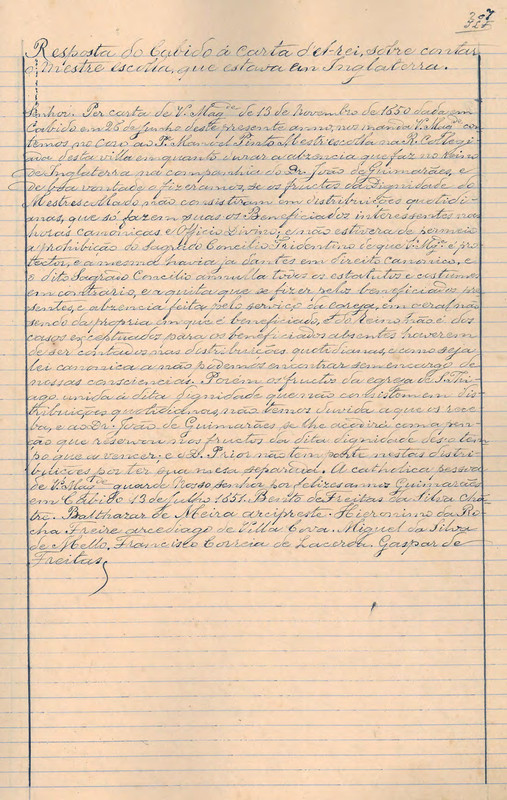 Resposta do Cabido á carta d'el-rei, sobre contar
o Mestre escola, que estava em Inglaterra.
Senhor. Per carta de V.ª Mag.de de 13 de Novembro de 1650 dada em
Cabido em 28 de Junho deste presente anno, nos manda V. Mag.de con-
temos no Coro ao P.e Manoel Pinto Mestre escolla na R. Collegi-
ada desta villa em quanto durar a absencia que faz no Reino
de Inglaterra na companhia do Dr. João de Guimarães, e
de boa vontade o fizeramos, se os fructos da Dignidade do
Mestrescollado, não consistiram em distribuições quotidi-
anas, que só fazem suas os Beneficiados interessentes nas
horas canonicas e Officio Divino, e não estivera de permeio
a prohibição do Sagrado Concilio Tridentino de que V. Mg.e é pro-
tector, e a mesma havia já dantes em direito canonico, e
o dito Sagrado Concilio annulla todos os estatutos e costumes
em contrario, e a quita que se fizer pelos beneficiados pre-
sentes, e absencia feita pelo serviço da egreja, em geral não
sendo da propria em que é beneficiado, e do Reino não é dos
casos exceptuados para os beneficiados absentes haverem
de ser contados nas distribuições quotidianas, e como seja
lei canonica a não podemos encontrar sem encargo de
nossas consciencias. Porem os fructos da egreja de S. Thi-
ago unida á dita dignidade que não consistem em dis-
tribuições quotidianas, não temos duvida a que os rece-
ba, e ao Dr. João de Guimarães se lhe acodirá com a pen-
ção que reservou nos fructos da dita dignidade desde o tem-
po que a vencer; e o D. Prior não tem parte nestas distri-
buições por ter qua mesa separada. A catholica pessoa
de V.ª Mag.de guarde Nosso Senhor por felizes annos Guimarães
em Cabido 13 de Julho 1651. Bento de Freitas da Silva Chan-
tre. Balthazar de Meira arcipreste. Hieronimo da Ro-
cha Freire arcediago de Villa Cova. Miguel da Silva
de Mello. Francisco Correia de Lacerda. Gaspar de
Freitas